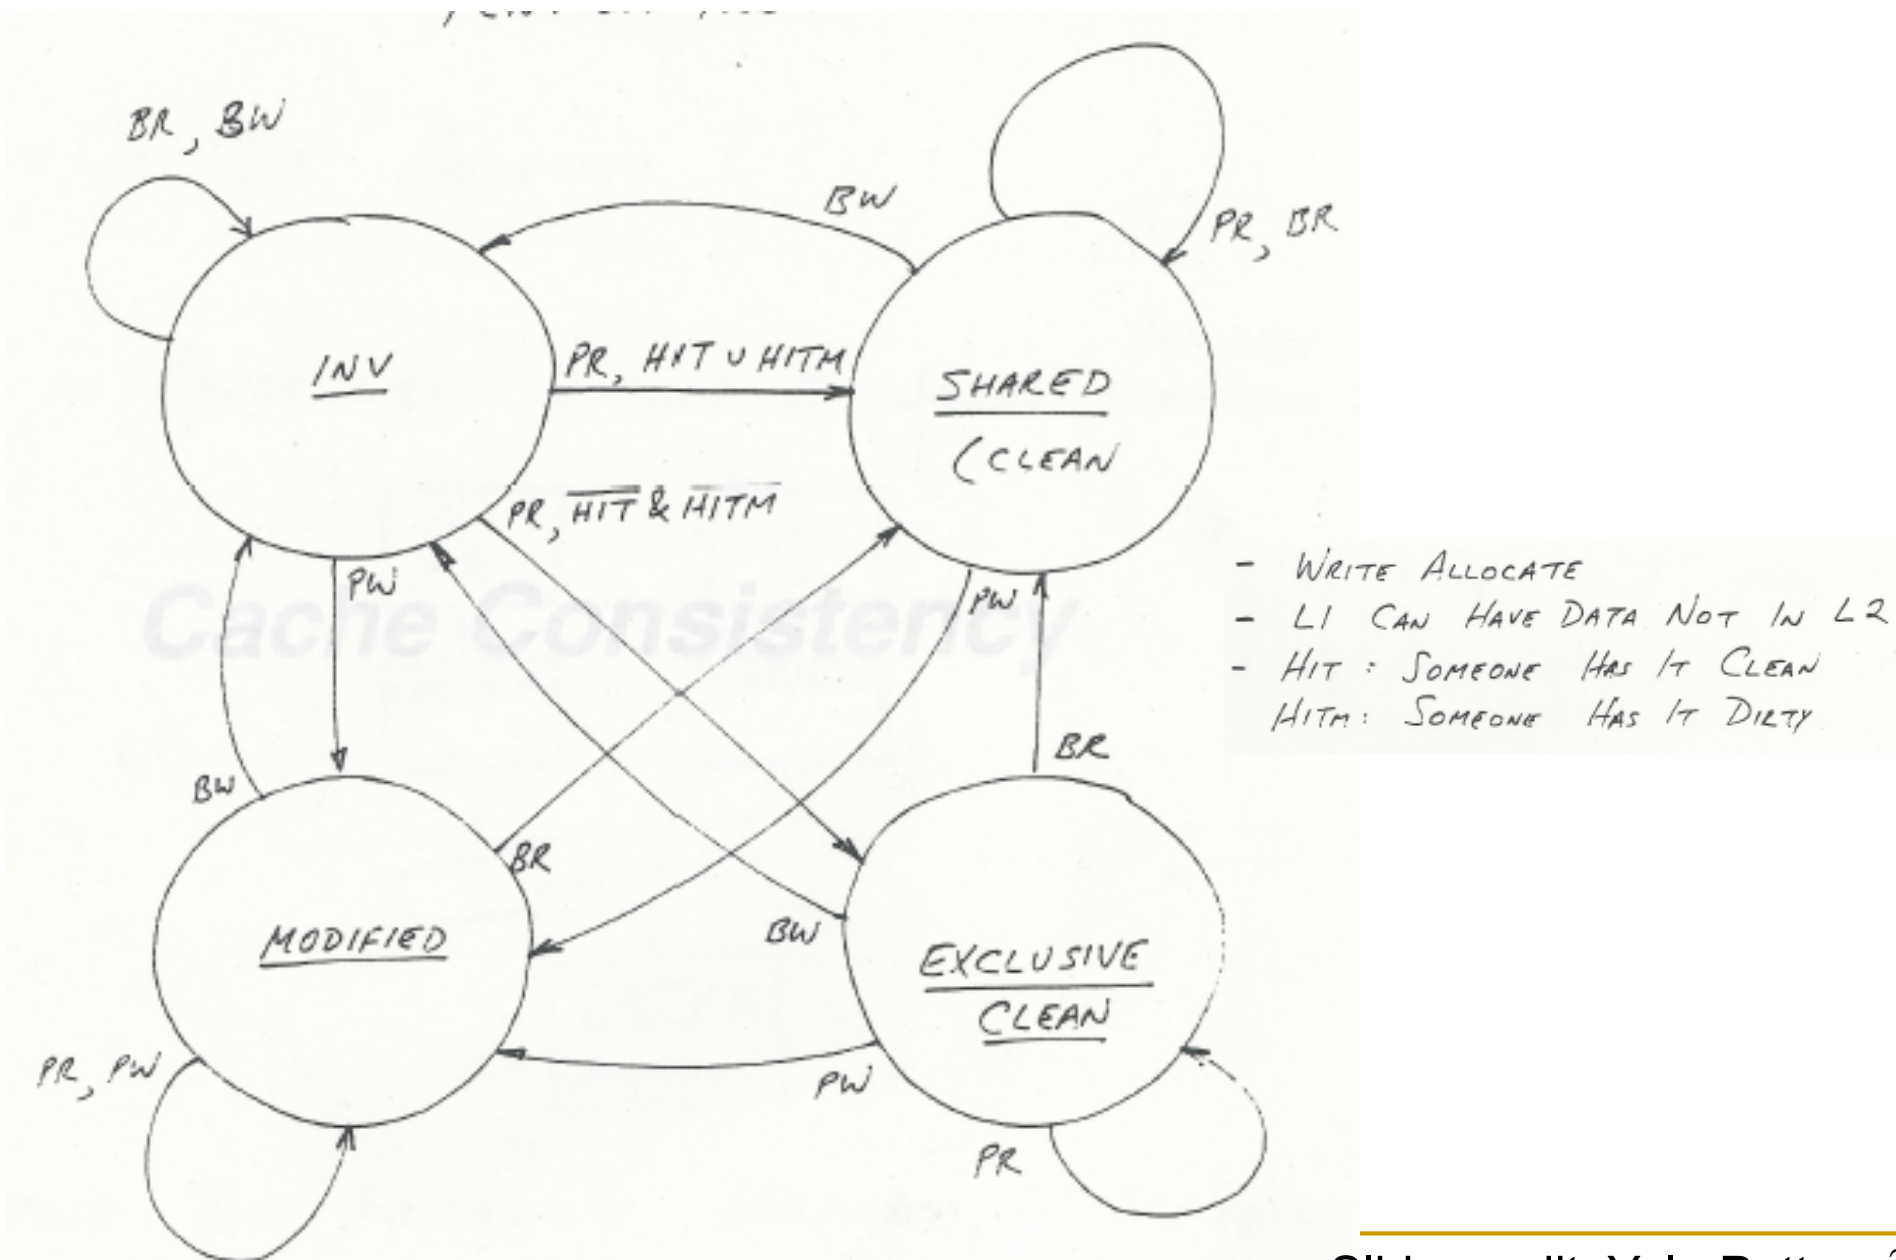 BR, BW
BW
PR, BR
INV
PR, HIT ∪ HITM
SHARED
(CLEAN
PR, H̅I̅T̅ & H̅I̅T̅M̅
PW
PW
Cache Consistency
- WRITE ALLOCATE
- L1 CAN HAVE DATA NOT IN L2
- HIT : SOMEONE HAS IT CLEAN
HITM: SOMEONE HAS IT DIRTY
BR
BW
BR
BW
MODIFIED
EXCLUSIVE
CLEAN
PR, PW
PW
PR